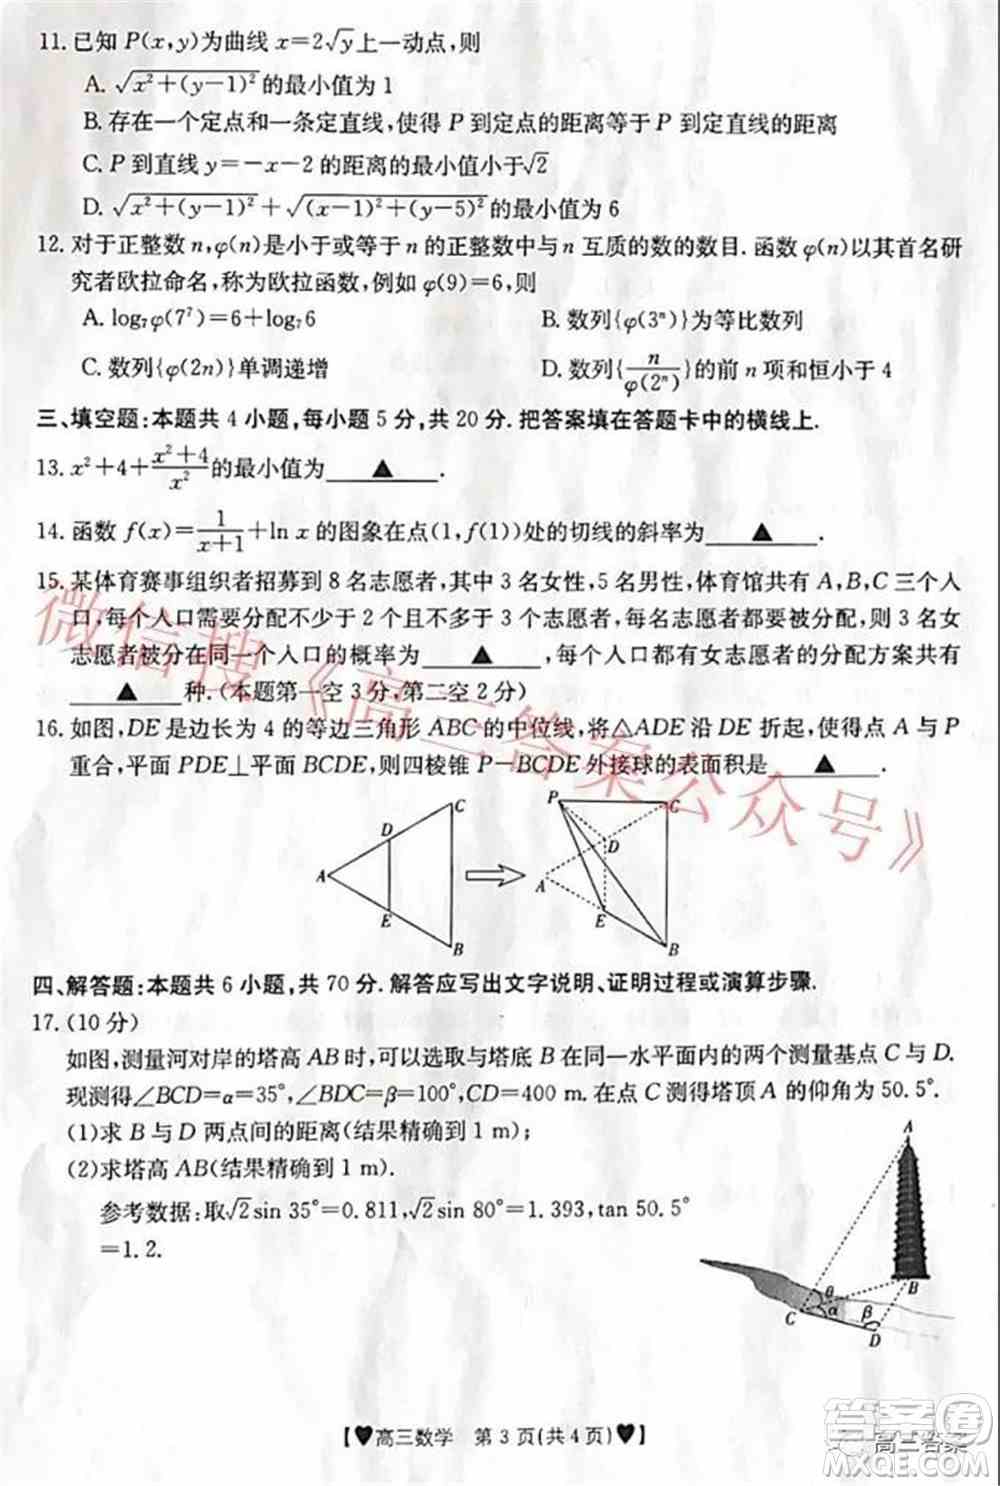 11. 已知 P(x,y)为曲线 x=2√y上一动点,则
A. √(x²+(y−1)²)的最小值为 1
B. 存在一个定点和一条定直线,使得 P 到定点的距离等于 P 到定直线的距离
C. P 到直线 y=−x−2 的距离的最小值小于√2
D. √(x²+(y−1)²)+√((x−1)²+(y−5)²)的最小值为 6
12. 对于正整数 n,φ(n)是小于或等于 n 的正整数中与 n 互质的数的数目.函数 φ(n)以其首名研
究者欧拉命名,称为欧拉函数,例如 φ(9)=6,则
A. log₇φ(7⁷)=6+log₇6 B. 数列{φ(3ⁿ)}为等比数列
C. 数列{φ(2n)}单调递增 D. 数列{n/φ(2ⁿ)}的前 n 项和恒小于 4
三、填空题:本题共 4 小题,每小题 5 分,共 20 分.把答案填在答题卡中的横线上.
13. x²+4+(x²+4)/x²的最小值为 ▲ .
14. 函数 f(x)=1/(x+1)+ln x 的图象在点(1,f(1))处的切线的斜率为 ▲ .
15. 某体育赛事组织者招募到 8 名志愿者,其中 3 名女性,5 名男性,体育馆共有 A,B,C 三个入
口,每个入口需要分配不少于 2 个且不多于 3 个志愿者,每名志愿者都要被分配,则 3 名女
志愿者被分在同一个入口的概率为 ▲ ,每个入口都有女志愿者的分配方案共有
▲ 种.(本题第一空 3 分,第二空 2 分)
16. 如图,DE 是边长为 4 的等边三角形 ABC 的中位线,将△ADE 沿 DE 折起,使得点 A 与 P
重合,平面 PDE⊥平面 BCDE,则四棱锥 P−BCDE 外接球的表面积是 ▲ .
A D E C B
P C D A E B
四、解答题:本题共 6 小题,共 70 分.解答应写出文字说明、证明过程或演算步骤.
17. (10 分)
如图,测量河对岸的塔高 AB 时,可以选取与塔底 B 在同一水平面内的两个测量基点 C 与 D.
现测得∠BCD=α=35°,∠BDC=β=100°,CD=400 m.在点 C 测得塔顶 A 的仰角为 50.5°.
(1)求 B 与 D 两点间的距离(结果精确到 1 m);
(2)求塔高 AB(结果精确到 1 m).
参考数据:取√2sin 35°=0.811,√2sin 80°=1.393,tan 50.5°
=1.2.
A B C D θ α β
【♥高三数学 第 3 页(共 4 页)♥】
微信搜《高三答案公众号》
答案卷
高三答案
MXQE.COM